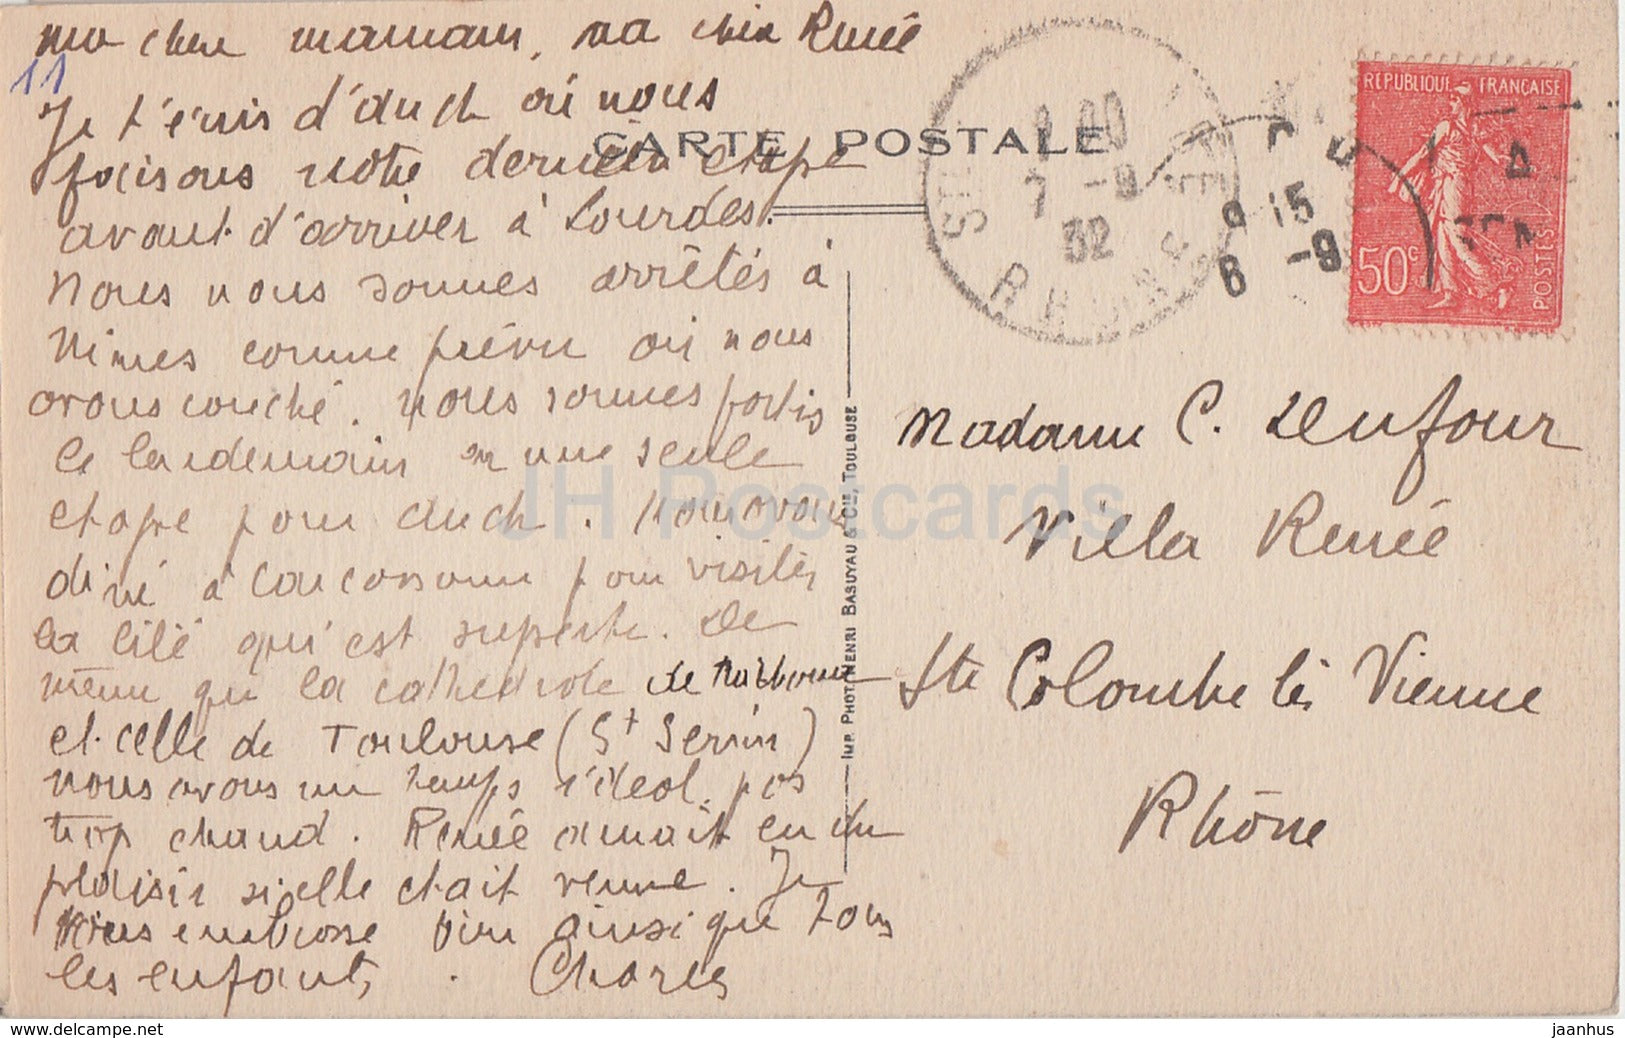 ma chère maman, ma chère Renée
11
Je t'écris d'Auch où nous
CARTE POSTALE
faisons notre dernière étape
avant d'arriver à Lourdes.
Nous nous sommes arrêtés à
Nimes comme prévu où nous
avons couché. Nous sommes partis
le lendemain en une seule
étape pour Auch. Nous avons
diné à Carcassonne pour visiter
la Cité qui est superbe. De
même que la cathedrale de Narbonne
et celle de Toulouse (St Sernin)
nous avons un temps idéal, pas
trop chaud. Renée aurait eu du
plaisir si elle était venue. Je
vous embrasse bien ainsi que tous
les enfants. Charles
IMP. PHOT. HENRI BASUYAU & CIE, TOULOUSE
RÉPUBLIQUE FRANÇAISE
50c
POSTES
7 -9
32
RHONE
9 15
6 -9
Madame C. Dufour
Villa Renée
Ste Colombe lès Vienne
Rhône
JH Postcards
www.delcampe.net
jaanhus